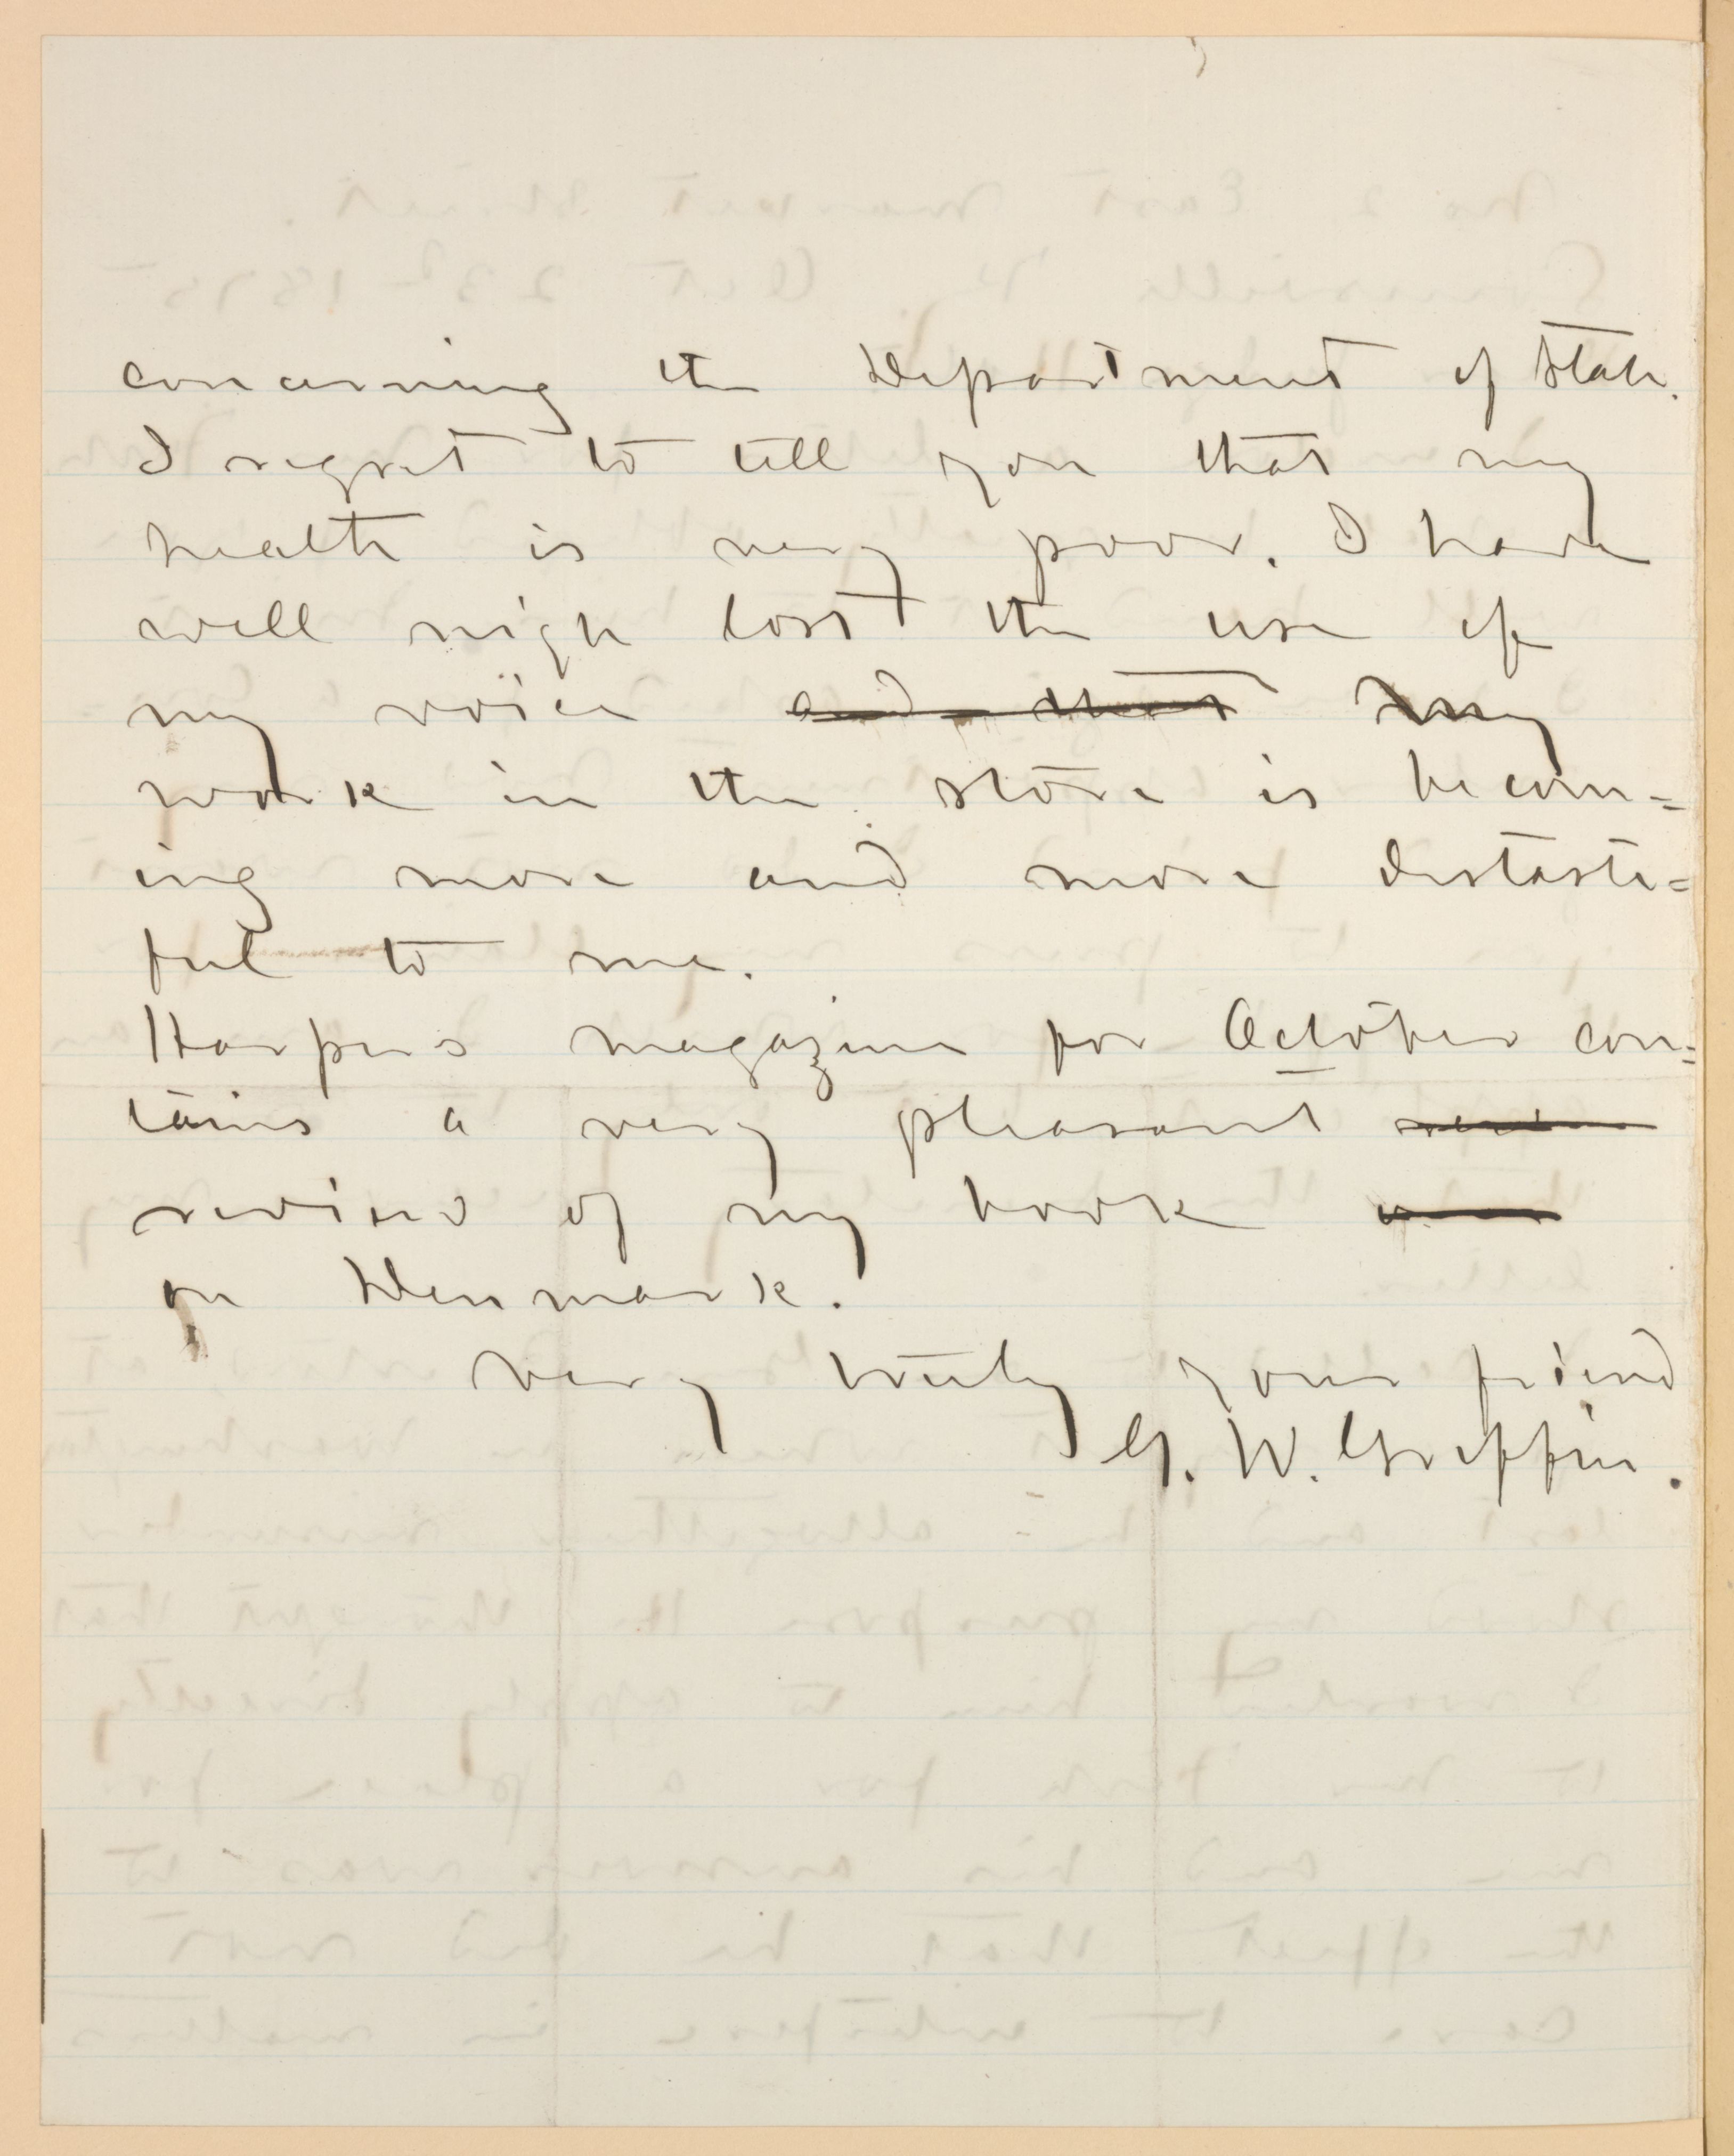 concerning the Department of State.
I regret to tell you that my
health is very poor. I have
well nigh lost the use of
my voice and that My
work in the store is becom=
ing more and more distaste=
ful to me.
Harpers magazine for October con=
tains a very pleasant
review of my book
on Denmark.
very truly your friend
G. W. Griffin.